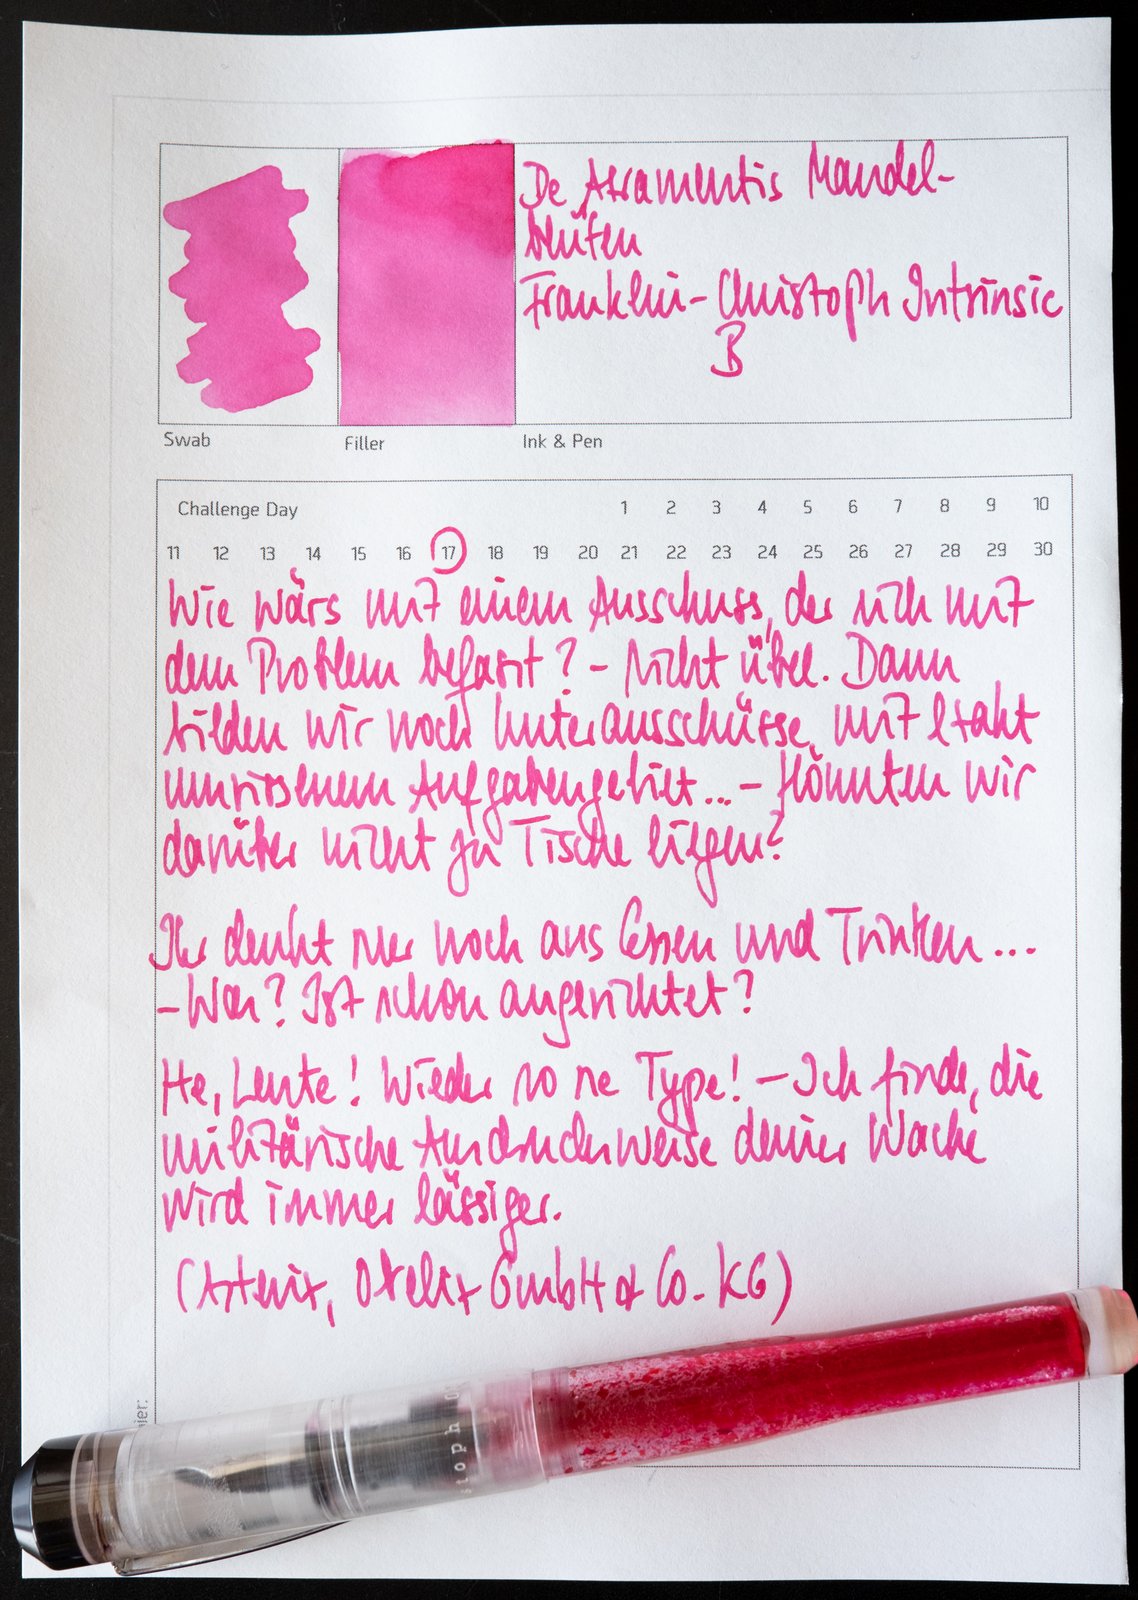 De Atramentis Mandel-
blüten
Franklin-Christoph Intrinsic
B
Swab
Filler
Ink & Pen
Challenge Day 1 2 3 4 5 6 7 8 9 10
11 12 13 14 15 16 17 18 19 20 21 22 23 24 25 26 27 28 29 30
Wie wärs mit einem Ausschuss, der sich mit
dem Problem befasst? - Nicht übel. Dann
bilden wir noch Unterausschüsse, mit exakt
umrissenem Aufgabengebiet... - Könnten wir
darüber nicht zu Tische liegen?
Ihr denkt nur noch ans Essen und Trinken...
- Was? Ist schon angerichtet?
He, Leute! Wieder so ne Type! - Ich finde, die
militärische Ausdrucksweise deiner Wache
wird immer lässiger.
(Asterix, Obelix GmbH & Co. KG)
toph